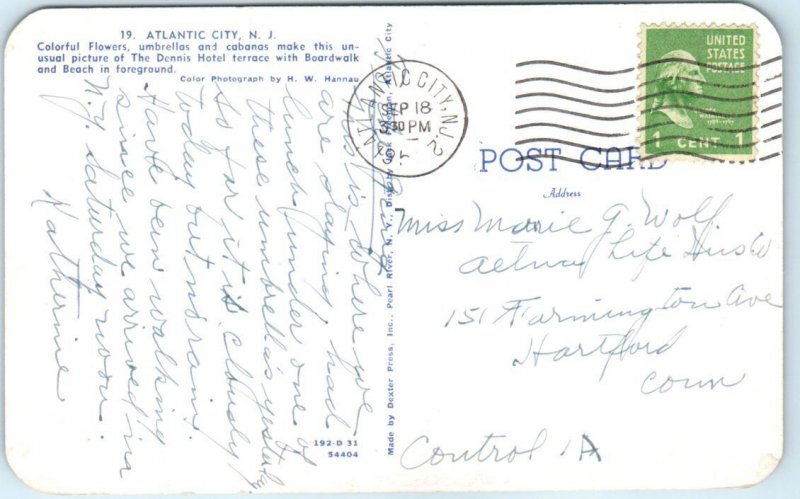 19. ATLANTIC CITY, N. J.
Colorful Flowers, umbrellas and cabanas make this un-
usual picture of The Dennis Hotel terrace with Boardwalk
and Beach in foreground.
Color Photograph by H. W. Hannau
This is where we
are staying, had
lunch under one of
these umbrellas yesterday
so far it is cloudy
today but no rain.
Have been walking
since we arrived in
N.Y. Saturday noon.
Katherine
192-D 31
54404
Made by Dexter Press, Inc., Pearl River, N. Y., Atlantic City
ATLANTIC CITY, N.J. 2
SEP 18
30 PM
UNITED
STATES
POSTAGE
1 CENT 1
POST CARD
Address
Miss Marie G. Wolf
Aetna Life Ins Co
151 Farmington Ave
Hartford
Conn
Control 1A